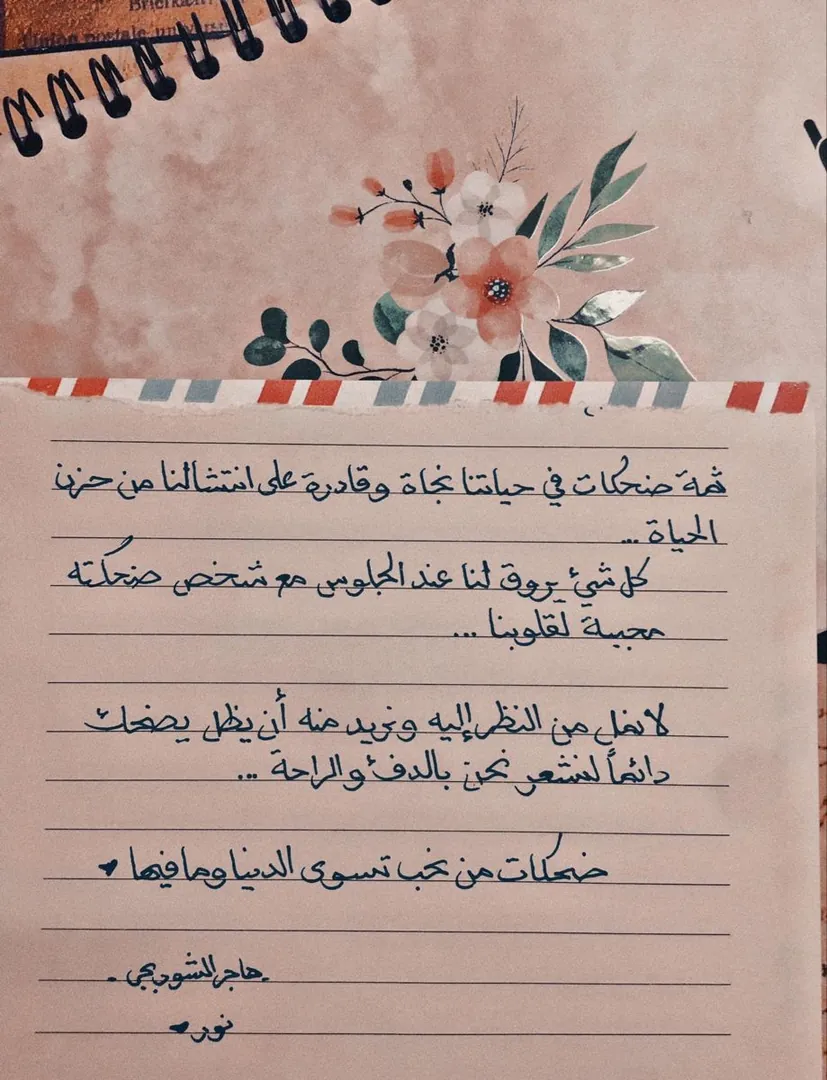 Union postale univers
ثمة ضحكات في حياتنا نجاة وقادرة على انتشالنا من حزن
الحياة ...
كل شيئ يروق لنا عند الجلوس مع شخص ضحكته
محببة لقلوبنا ...
لا نمل من النظر إليه ونريد منه أن يظل يضحك
دائماً لنشعر نحن بالدفئ والراحة ...
ضحكات من نحب تسوى الدنيا وما فيها ♥
. هاجر الشويحي .
نور ♥